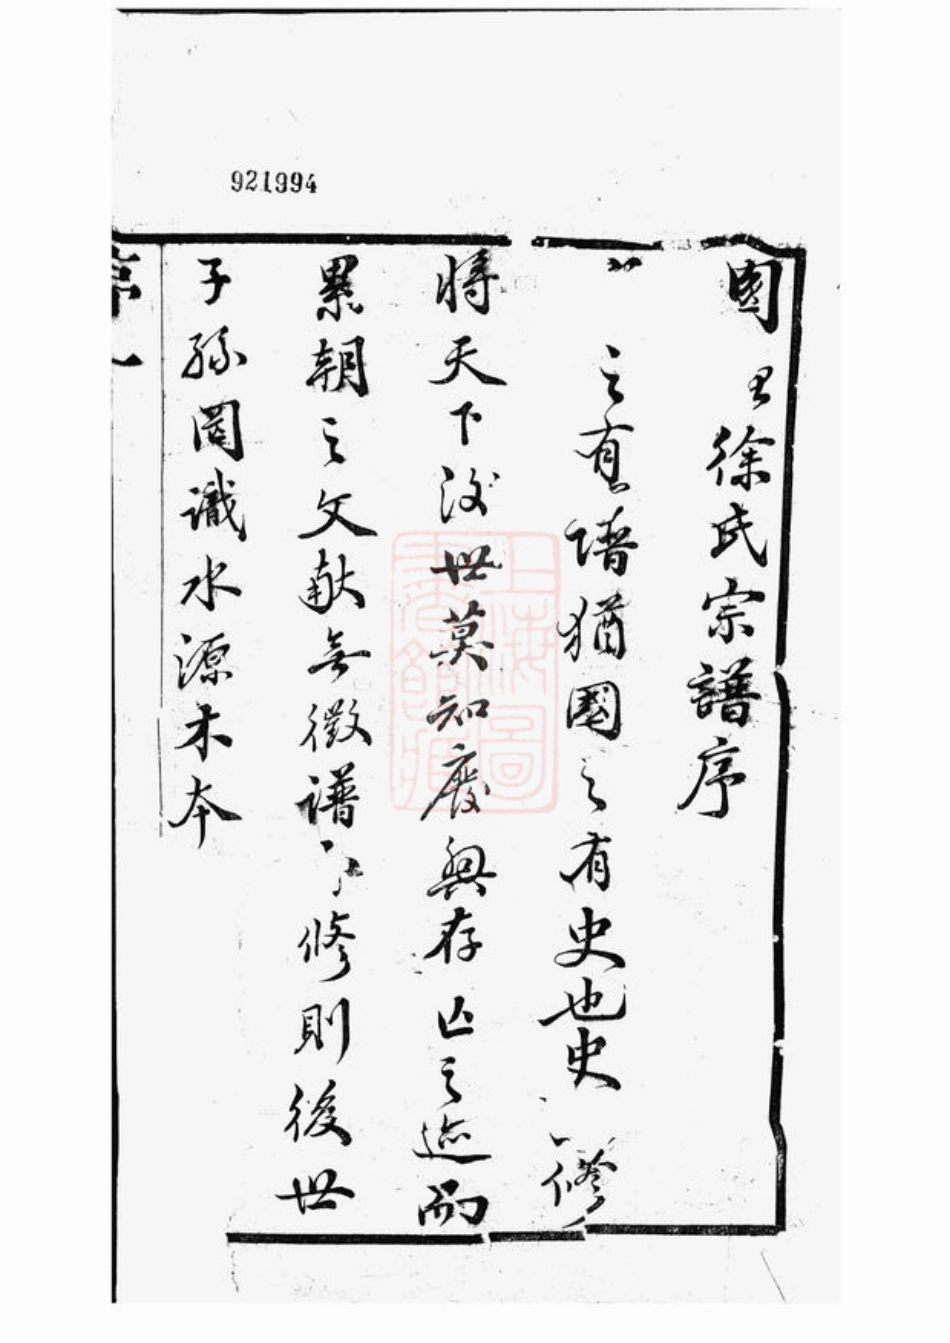 921994
徐氏宗譜序
之有譜猶國之有史也史修
將天下後世莫知廢興存亡之迹而
累朝之文獻無徵譜修則後世
子孫罔識水源木本
上海圖書館藏